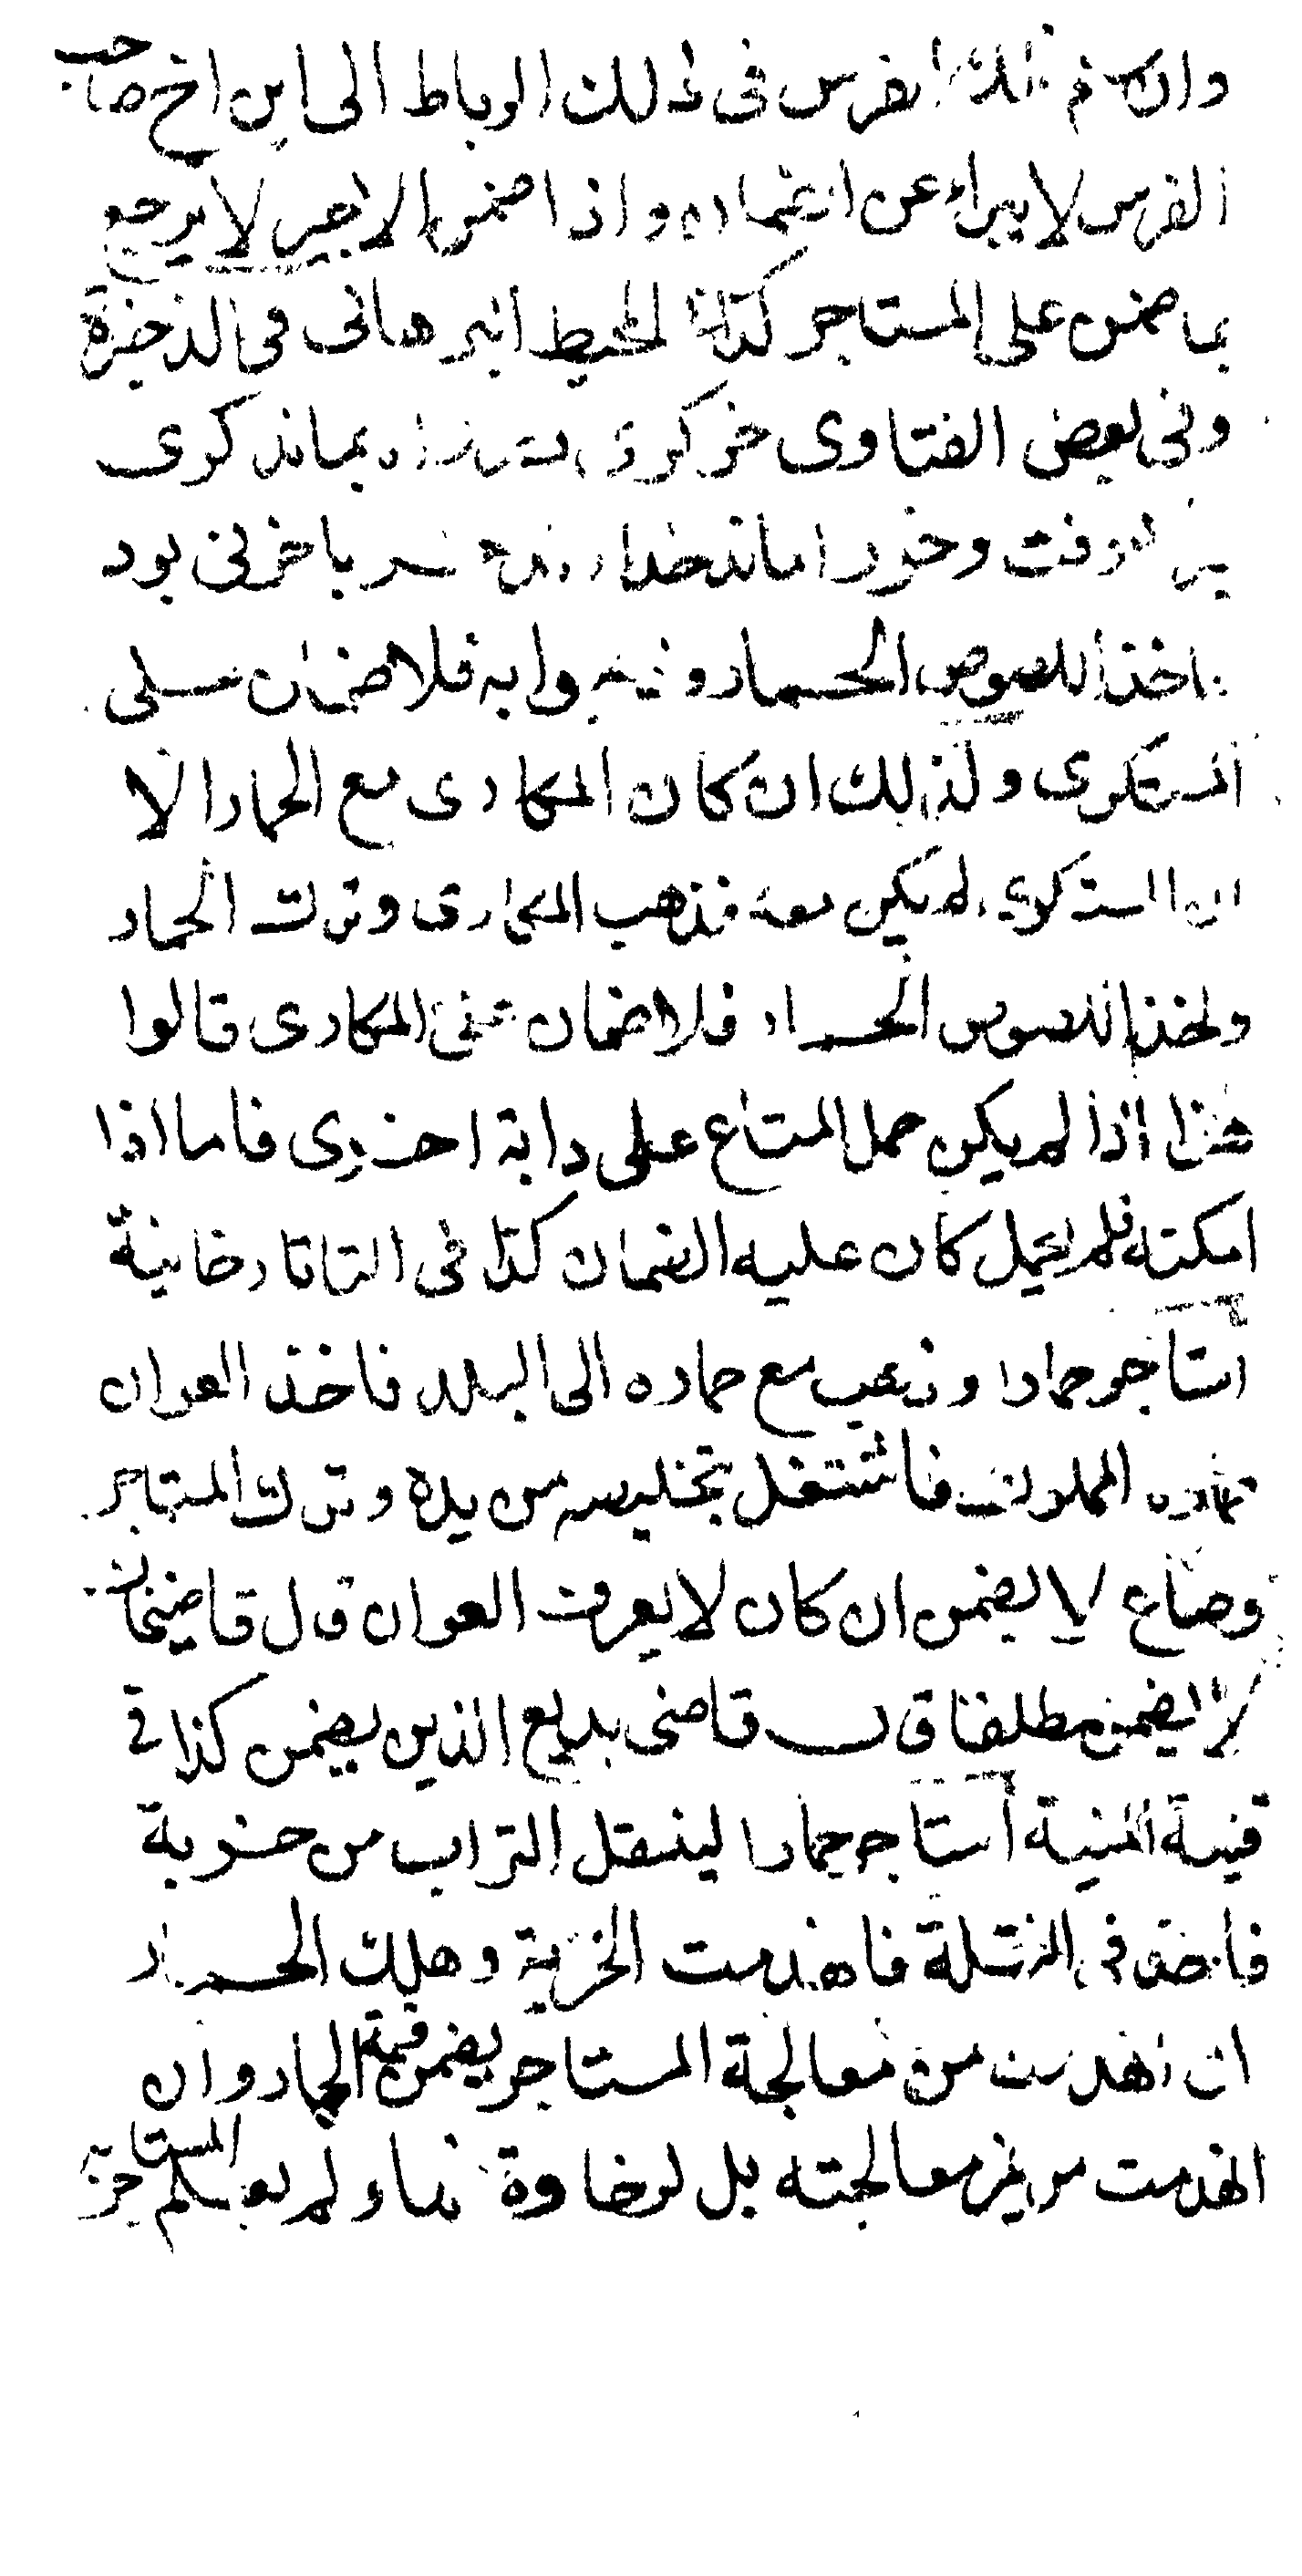 وان سلم الفرس فى ذلك الرباط الى ابن اخ صاحب
الفرس لا يبراء عن الضمان واذا ضمن الاجير لا يرجع
بما ضمن على المستاجر كذا المحيط البرهانى فى الذخيرة
وفى بعض الفتاوى خر كرى بماند كرى
رفت وخر اماند خداوند خر با خر نى بود
فاخذ اللصوص الحمار و دوابه فلا ضمان على
المستكرى ولذلك ان كان المكارى مع الحمار الا
ان المستكرى لم يكن معه فذهب المكارى وترك الحمار
واخذ اللصوص الحمار فلا ضمان على المكارى قالوا
هذا اذا لم يكن حمل المتاع على دابة اخرى فاما اذا
امكنه فلم يحمل كان عليه الضمان كذا فى التاتارخانية
استاجر حمارا وذهب مع حماره الى البلد فاخذ العوان
حماره المملوك فاشتغل بتخليصه من يده وترك المستاجر
وضاع لا يضمن ان كان لا يعرف العوان قال قاضيخان
لا يضمن مطلقا قال قاضى بديع الدين يضمن كذا فى
قنية المنية استاجر حمارا لينقل التراب من خربة
فاخذ فى النقلة فانهدمت الخربة وهلك الحمار
ان انهدمت من معالجة المستاجر يضمن قيمة الحمار وان
انهدمت من غير معالجته بل لرخاوة فيها ولم يعلم المستاجر